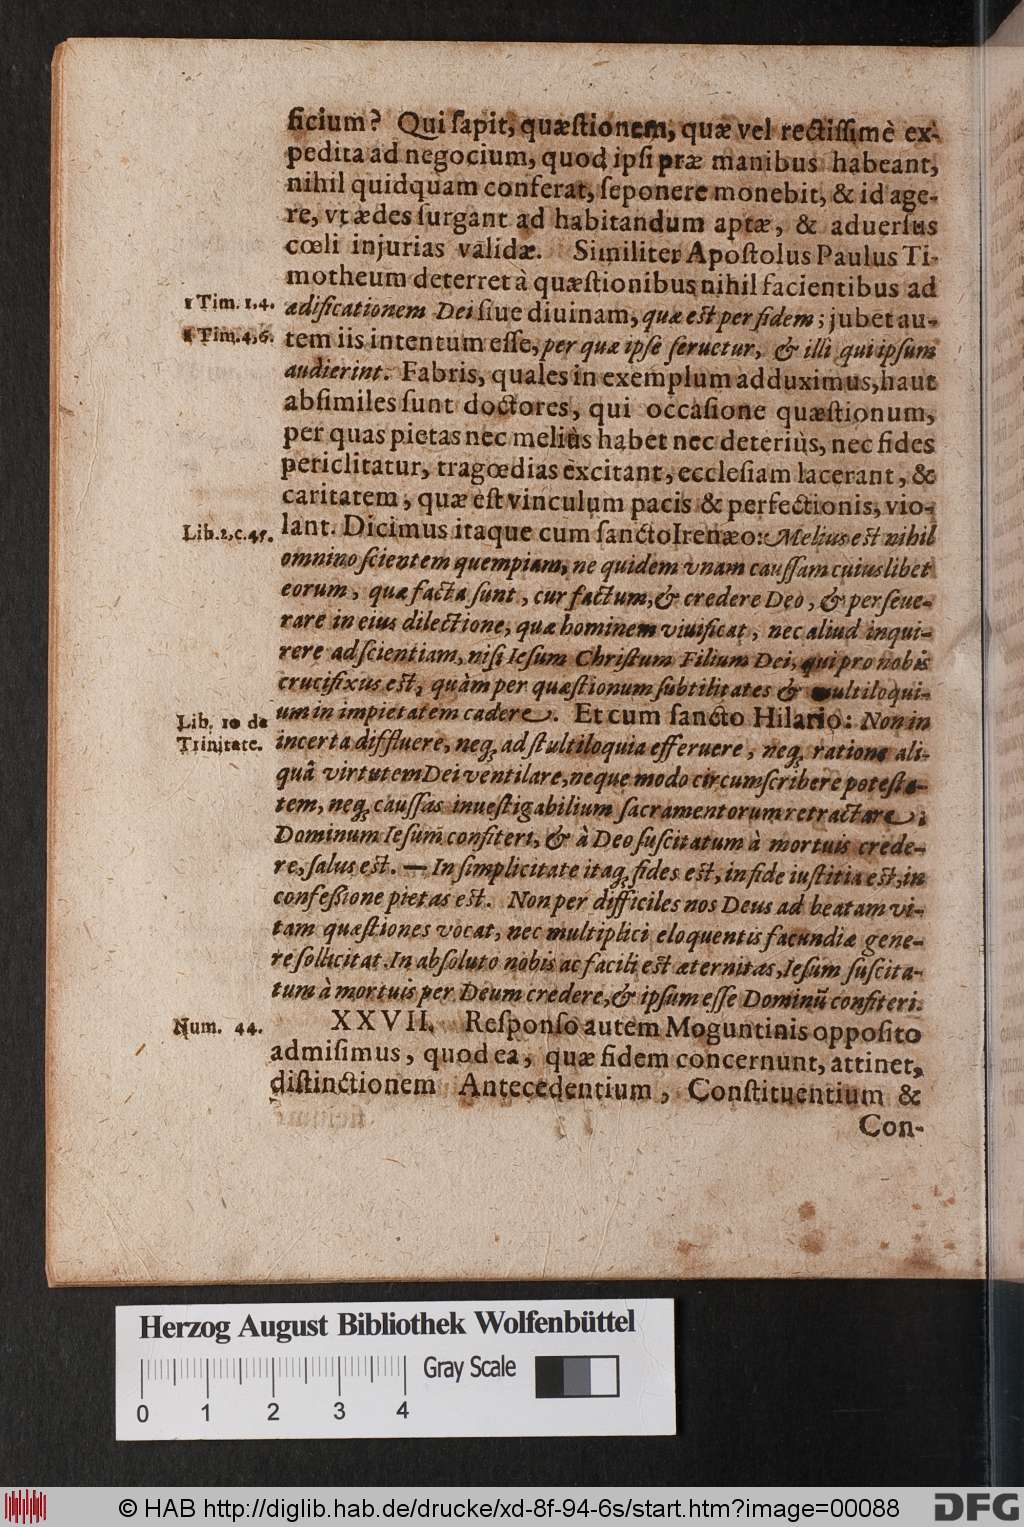 ficium? Qui ſapit, quæſtionem, quæ vel rectiſſimè ex-
pedita ad negocium, quod ipſi præ manibus habeant,
nihil quidquam conferat, ſeponere monebit, & id age-
re, vt ædes ſurgant ad habitandum aptæ, & aduerſus
cœli injurias validæ. Similiter Apoſtolus Paulus Ti-
motheum deterret à quæſtionibus nihil facientibus ad
1 Tim. 1,4. ædificationem Dei ſiue diuinam, quæ eſt per fidem; jubet au-
1 Tim. 4,6. tem iis intentum eſſe, per quæ ipſe ſeruetur, & illi qui ipſum
audierint. Fabris, quales in exemplum adduximus, haut
abſimiles ſunt doctores, qui occaſione quæſtionum,
per quas pietas nec meliùs habet nec deteriùs, nec fides
periclitatur, tragœdias excitant, eccleſiam lacerant, &
caritatem, quæ eſt vinculum pacis & perfectionis, vio-
Lib. 2, c. 45. lant. Dicimus itaque cum ſancto Irenæo: Melius eſt nihil
omnino ſcientem quempiam, ne quidem vnam cauſſam cuiuslibet
eorum, quæ facta ſunt, cur factum, & credere Deo, & perſeue-
rare in eius dilectione, quæ hominem viuificat, nec aliud inqui-
rere ad ſcientiam, niſi Ieſum Chriſtum Filium Dei, qui pro nobis
crucifixus eſt, quàm per quæſtionum ſubtilitates & multiloqui-
Lib. 10 de um in impietatem cadere. Et cum ſancto Hilario: Non in
Trinitate. incerta diffluere, neq; ad ſtultiloquia efferuere, neq; ratione ali-
quâ virtutem Dei ventilare, neque modo circumſcribere poteſta-
tem, neq; cauſſas inueſtigabilium ſacramentorum retractare;
Dominum Ieſum confiteri, & à Deo ſuſcitatum à mortuis crede-
re, ſalus eſt. — In ſimplicitate itaq; fides eſt, in fide iuſtitia eſt, in
confeſſione pietas eſt. Non per difficiles nos Deus ad beatam vi-
tam quæſtiones vocat, nec multiplici eloquentis facundiæ gene-
re ſollicitat. In abſoluto nobis ac facili eſt æternitas, Ieſum ſuſcita-
tum à mortuis per Deum credere, & ipſum eſſe Dominū confiteri.
Num. 44. XXVII. Reſponſo autem Moguntinis oppoſito
admiſimus, quod ea, quæ fidem concernunt, attinet,
diſtinctionem Antecedentium, Conſtituentium &
Con-
Herzog August Bibliothek Wolfenbüttel
Gray Scale
0 1 2 3 4
© HAB http://diglib.hab.de/drucke/xd-8f-94-6s/start.htm?image=00088
DFG